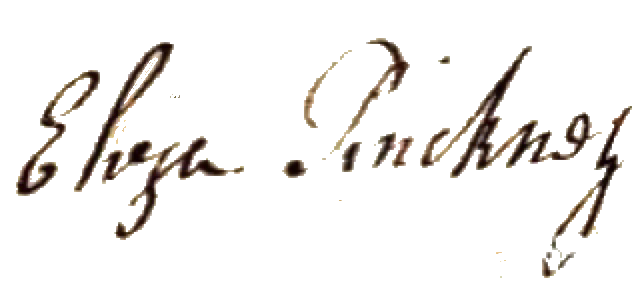 Eliza Pinckney